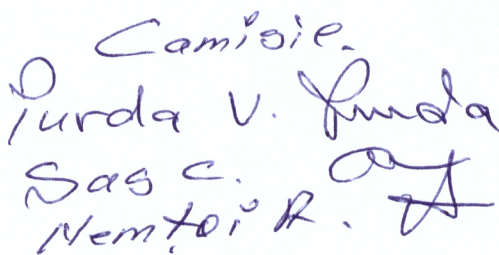 Comisie.
Purda V. Purda
Sas C.
Nemțoi A.